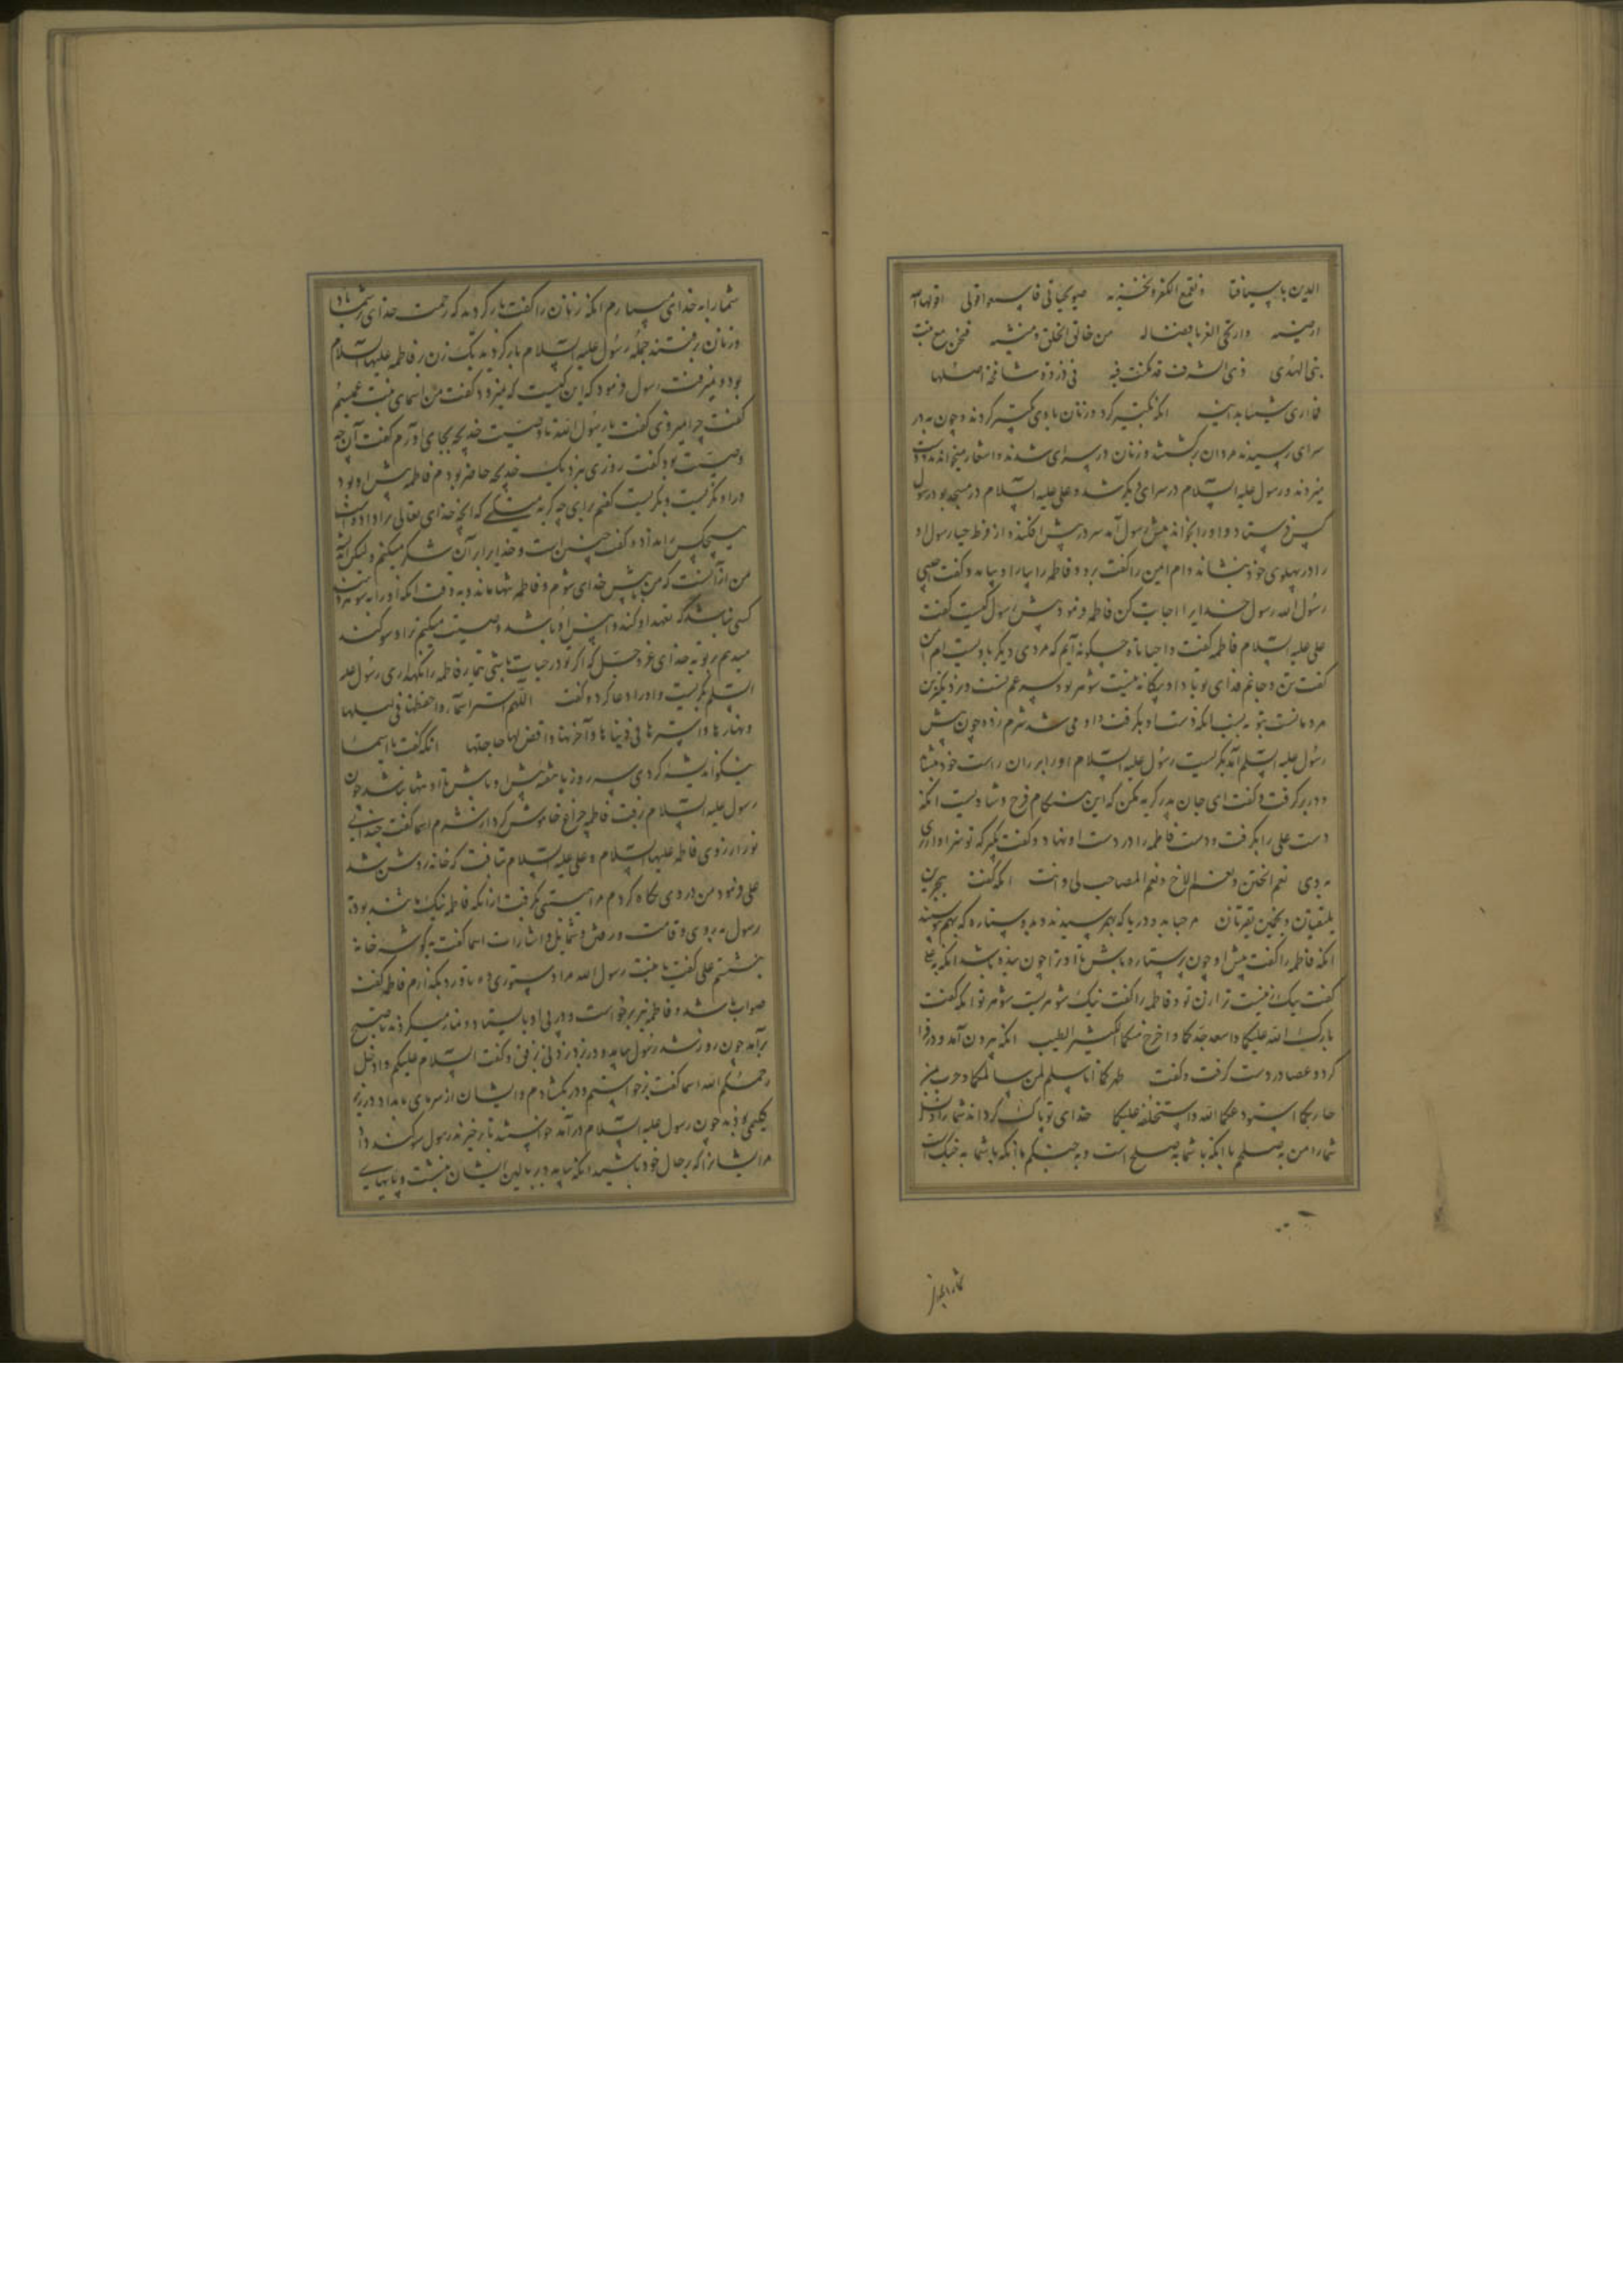 الدین باسیافنا ونقمع الکفر ونخزیه صویحباتی فاسمعوا قولی اقولها
ارضیه وارتجی الفربافضاله من خالق الخلق ومنشیه فنحن مع بنت
نبی الهدی ذی الشرف قد مکنت فیه فی ذروة شامخة اصلها
فما اری شیئا یدانیه انکه تکبیر کرد و زنان با وی تکبیر کردند و چون به در
سرای رسیدند مردان برگشتند و زنان در سرای شدند و اشعار میخواندند و دف
میزدند و رسول علیه السلام در سرای دیگر شد و علی علیه السلام در مسجد بود رسول
کس فرستاد و او را بخواند پیش رسول آمد سر در پیش افکنده از فرط حیا رسول او
را در پهلوی خود بنشاند و ام ایمن را گفت برو و فاطمه را بیار او بیامد و گفت حبیبی
رسول الله رسول خدایرا اجابت کن فاطمه فرمود پیش رسول کیست گفت
علی علیه السلام فاطمه گفت واحیاتاه چگونه آیم که مردی دیگر با اوست ام ایمن
گفت تن و جانم فدای تو باد او بیگانه نیست شوهر تو و پسر عم تست و نزدیکترین
مردمانست بتو به نسب انکه دست او بگرفت و او می شد شرم زده چون پیش
رسول علیه السلم آمد بگریست رسول علیه السلام او را بر ران راست خود بنشاند
و در بر گرفت و گفت ای جان پدر گریه مکن که این هنگام فرح و شادیست انکه
دست علی را بگرفت و دست فاطمه را در دست او نهاد و گفت بگیر که تو سزاواری
به وی نعم الختن و نعم الاخ و نعم المصاحب لی انت انکه گفت بحرین
یلتقیان و نجمین یقترنان مرحبا به دو دریا که بهم رسیدند و به دو ستاره که بهم پیوستند
انکه فاطمه را گفت پیش او چون پرستاره باش تا او ترا چون بنده باشد انکه به علی
گفت نیک زنیست ترا زن تو و فاطمه را گفت نیک شوهریست شوهر تو انکه گفت
بارک الله علیکما واسعد جدکما واخرج منکما الکثیر الطیب انکه بیرون آمد و در فرا
کرد و عضاده در دست گرفت و گفت طهرکما انا سلم لمن سالمکما وحرب لمن
حاربکما استودعکما الله واستخلفه علیکما خدای تو پاک گرداناد شما را و نسل
شما را من به صلحم با انکه با شما به صلح است و به جنگم با انکه با شما به جنگ است
شما را به خدای میسپارم انکه زنان را گفت بازگردید که رحمت خدای بر شما باد
و زنان برفتند جمله رسول علیه السلام بازگردید یک زن بر فاطمه علیها السلام
بود و نمیرفت رسول فرمود که این کیست که نمیرود گفت من اسمای بنت عمیسم
گفت چرا نمیروی گفت یا رسول الله تا وصیت خدیجه بجای آورم گفت آن چه
وصیت بود گفت روزی نزدیک خدیجه حاضر بودم فاطمه پیش او بود
در او نگریست و بگریست گفتم برای چه گریه میکنی که انچه خدای تعالی ترا داده است
هیچکس را نداد و گفت چنین است و خدایرا بر آن شکر میکنم ولیکن گریه
من از آنست که من پیش خدای شوم و فاطمه تنها ماند و به وقت انکه او را به شوهر دهند
کسی نباشد که تعهد او کند و پیش او باشد وصیت میکنم ترا و سوگند
میدهم بر تو به خدای عز وجل که اگر تو در حیات باشی تیمار فاطمه را نگهداری رسول علیه
السلم بگریست و او را دعا کرد و گفت اللهم استر اسماء واحفظها فی لیلها
ونهارها واسترها فی دنیاها وآخرتها واقض لها حاجتها انکه گفت یا اسما
نیکو اندیشه کردی سه روز یا هفته پیش او باش تا او تنها نباشد چون
رسول علیه السلام برفت فاطمه چراغ خاموش کرد از شرم اسما گفت چندانی
نور از روی فاطمه علیها السلام و علی علیه السلام تافت که خانه روشن شد
علی فرمود من در وی نگاه کردم مرا هیبتی بگرفت از انکه فاطمه نیک ماننده بود به
رسول به روی و قامت و رفتن و شمایل و اشارات اسما گفت به گوشه خانه
بنشستم علی گفت یا بنت رسول الله مرا دستوری ده تا ورد بگذارم فاطمه گفت
صواب باشد و فاطمه نیز برخواست و در پی او بایستاد و نماز میکردند تا صبح
برآمد چون روز شد رسول بیامد و در بزد زدنی برفق و گفت السلام علیکم وادخل
رحمکم الله اسما گفت برخواستم و در بگشادم و ایشان از سرمای بامداد در زیر
گلیمی بودند چون رسول علیه السلام در آمد خواستند تا برخیزند رسول سوگند داد
مر ایشان را که بر حال خود باشید انکه بیامد و بر بالین ایشان بنشست و پایهای
شما را بخدای